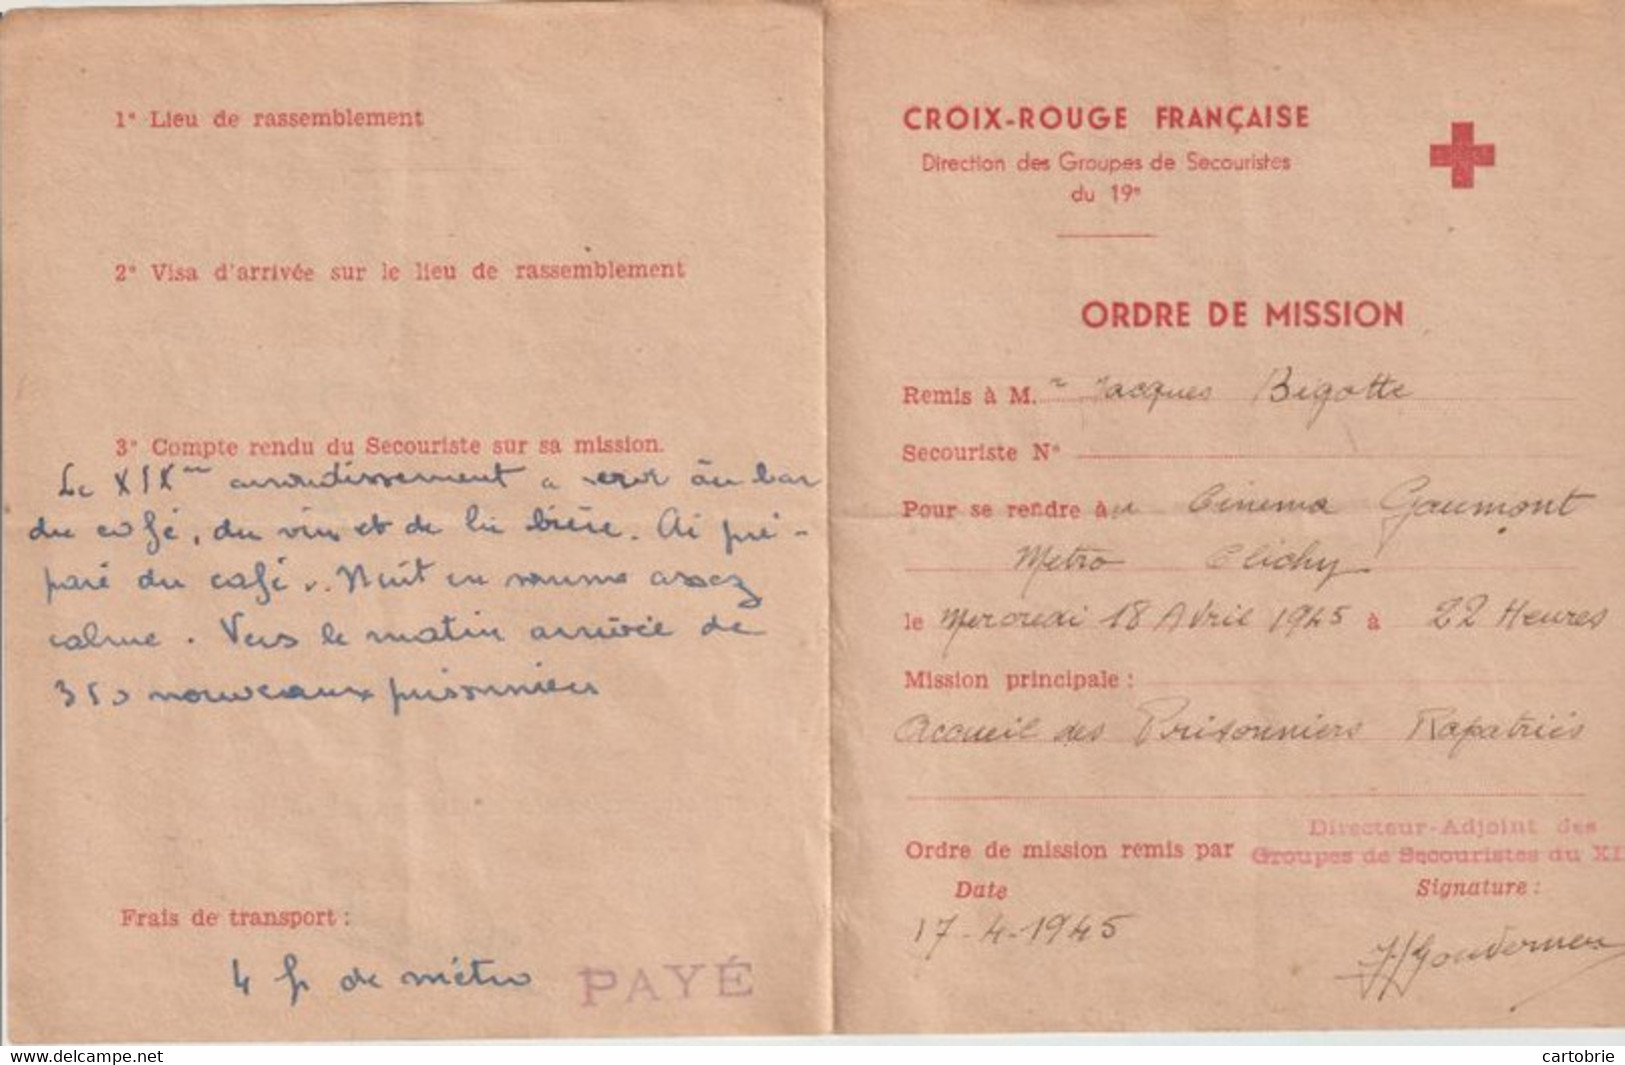 1° Lieu de rassemblement
2° Visa d'arrivée sur le lieu de rassemblement
3° Compte rendu du Secouriste sur sa mission.
Le XIXme arrondissement a servi au bar
du café, du vin et de la bière. Ai pré-
paré du café. Nuit en somme assez
calme. Vers le matin arrivée de
350 nouveaux prisonniers
Frais de transport :
4 f de métro PAYÉ
CROIX-ROUGE FRANÇAISE
Direction des Groupes de Secouristes
du 19e
ORDRE DE MISSION
Remis à M.r Jacques Bigotte
Secouriste N°
Pour se rendre àu Cinema Gaumont
Metro Clichy
le Mercredi 18 Avril 1945 à 22 Heures
Mission principale :
Accueil des Prisonniers Rapatriés
Directeur-Adjoint des
Ordre de mission remis par Groupes de Secouristes du XI
Date Signature :
17-4-1945
delcampe.net
cartobrie